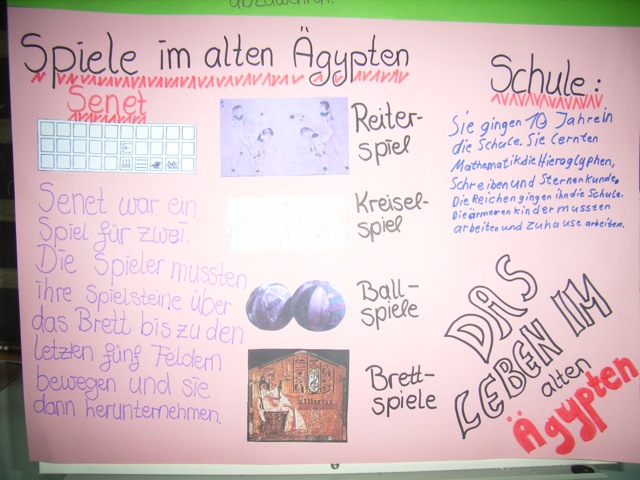 abzuwehren.
Spiele im alten Ägypten
Senet
Senet war ein
Spiel für zwei.
Die Spieler mussten
ihre Spielsteine über
das Brett bis zu den
letzten fünf Feldern
bewegen und sie
dann herunternehmen.
Reiter-
spiel
Kreisel-
spiel
Ball-
spiele
Brett-
spiele
Schule:
Sie gingen 10 Jahre in
die Schule. Sie lernten
Mathematik die Hieroglyphen,
Schreiben und Sternenkunde.
Die Reichen gingen ihn die Schule.
Die ärmeren kinder mussten
arbeiten und zuhause arbeiten.
DAS
LEBEN IM
alten
Ägypten